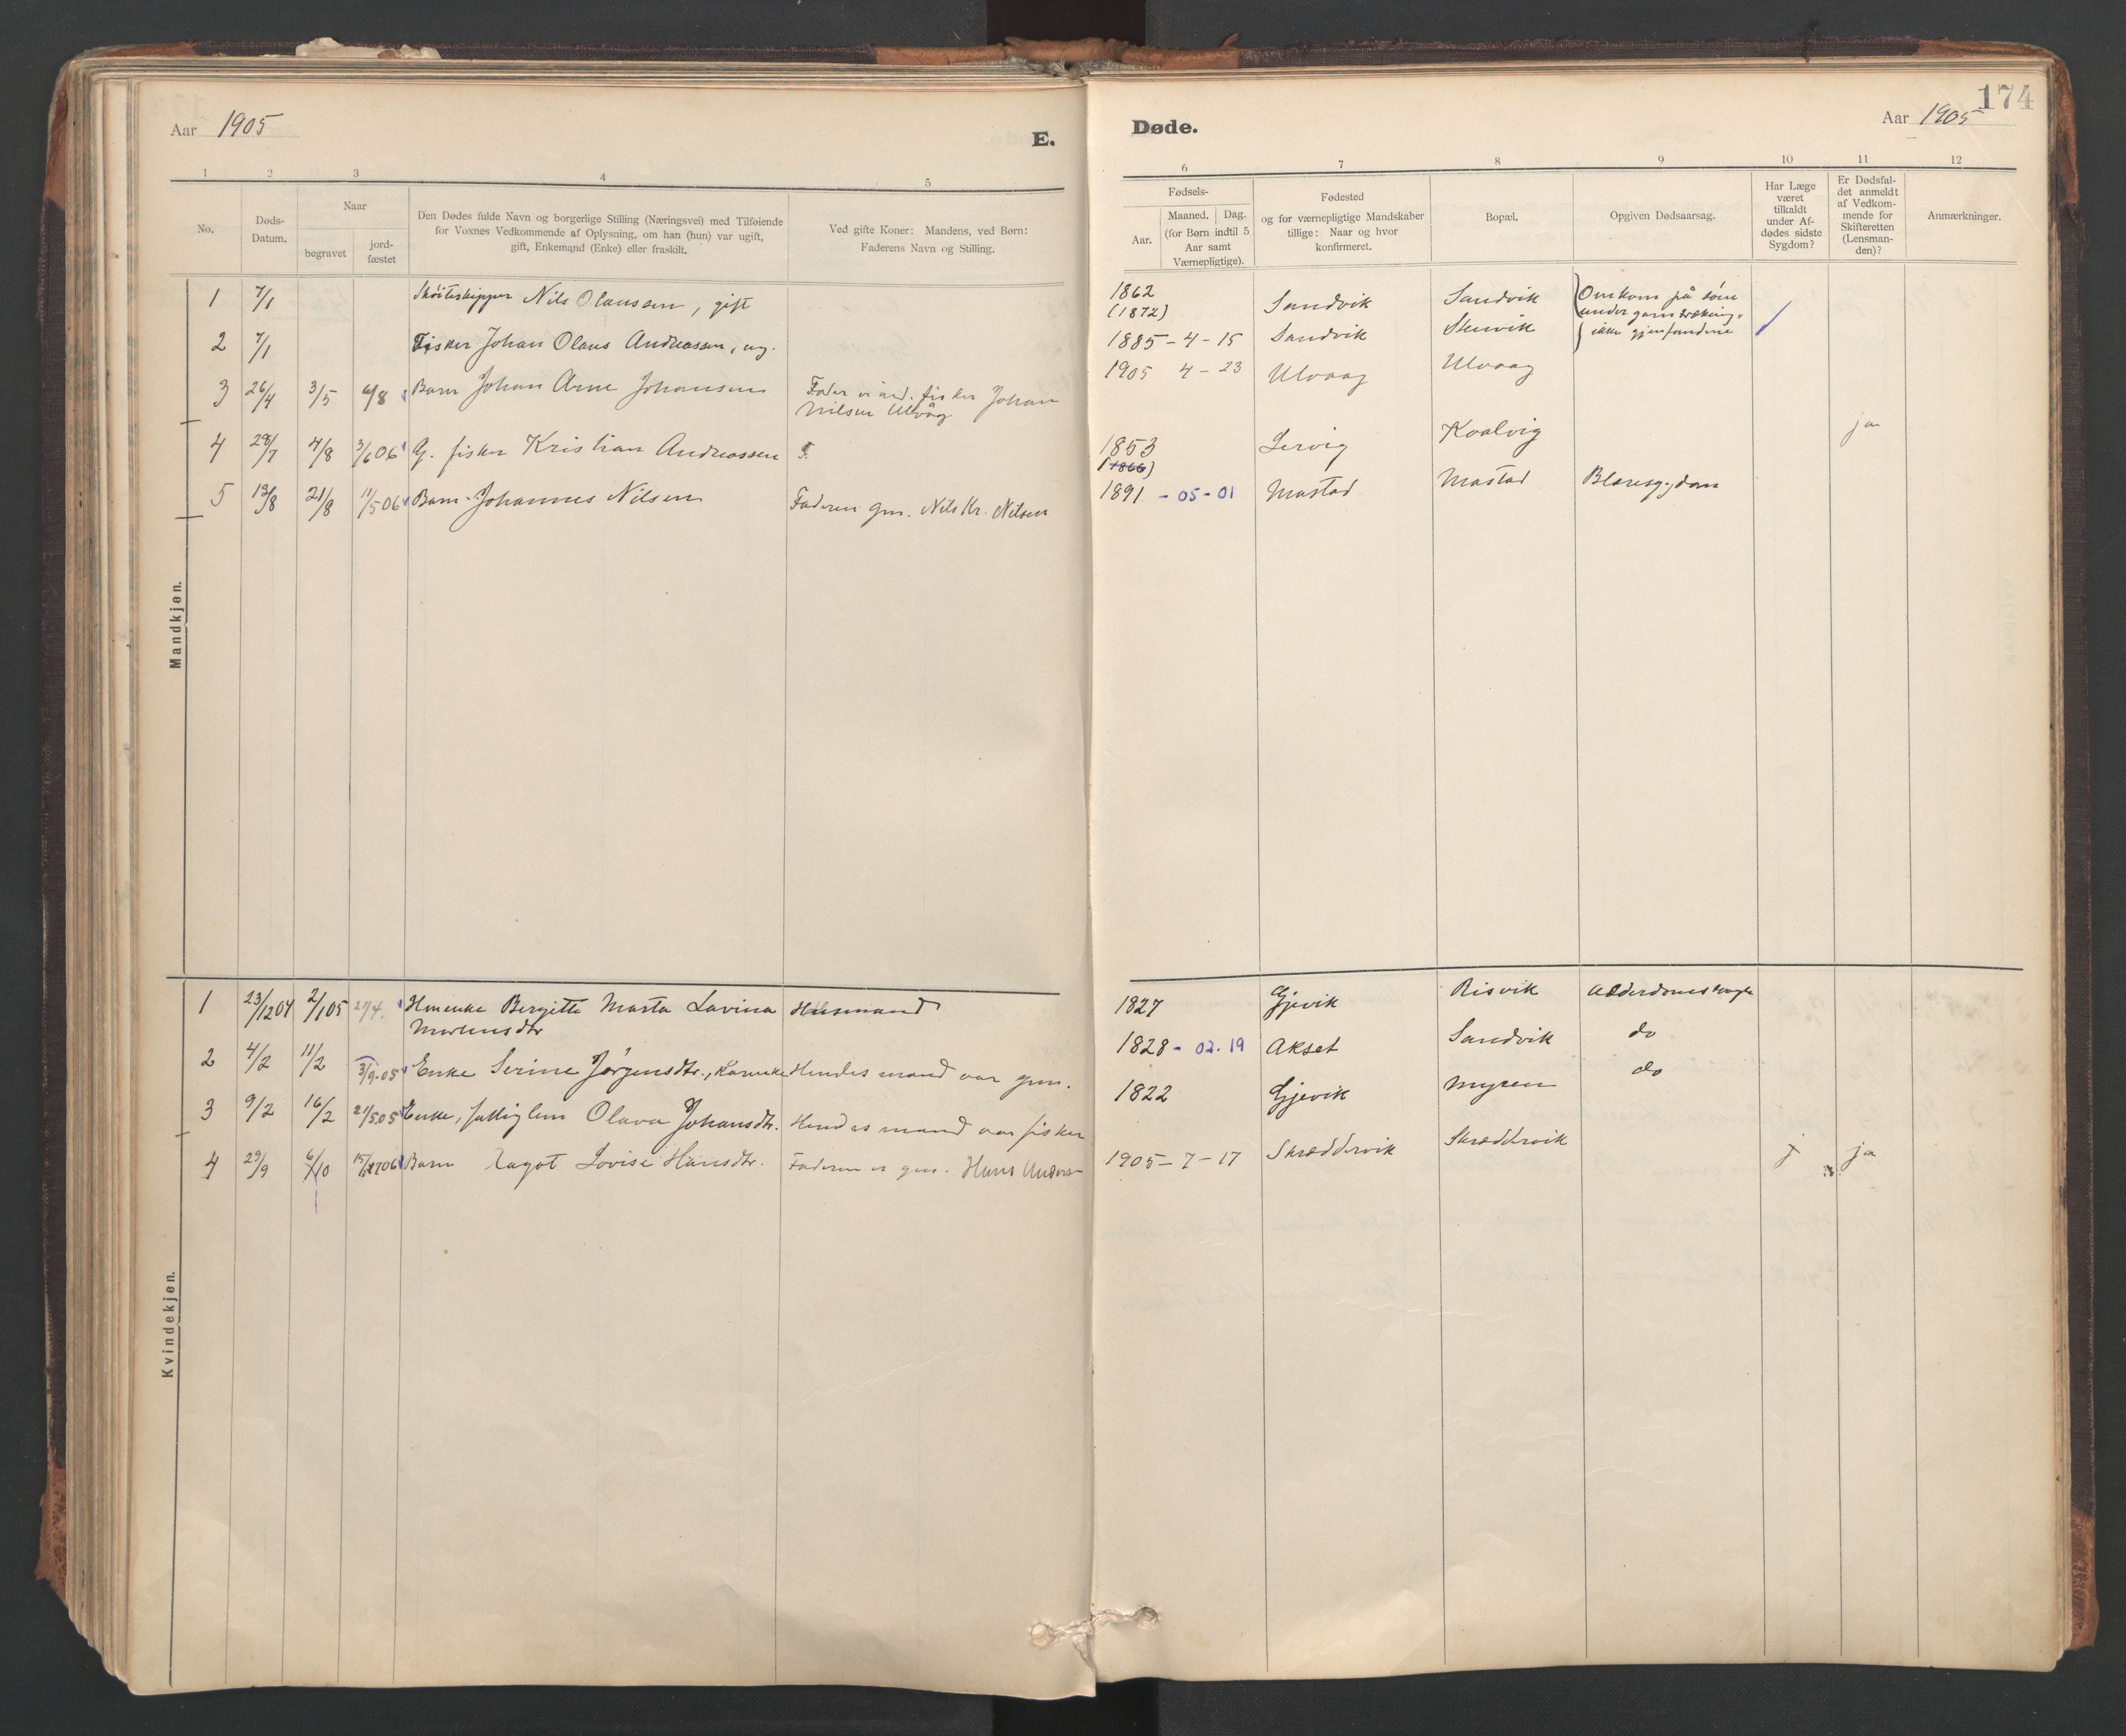 Aar 1905
E.
1 2 3 4 5
No.
Døds-
Datum.
Naar
begravet
jord-
fæstet
Den Dødes fulde Navn og borgerlige Stilling (Næringsvei) med Tilføiende
for Voxnes Vedkommende af Oplysning, om han (hun) var ugift,
gift, Enkemand (Enke) eller fraskilt.
Ved gifte Koner: Mandens, ved Børn:
Faderens Navn og Stilling.
Mandkjøn.
1 7/1 Skøiteskipper Nils Olaussen, gift
2 7/1 Fisker Johan Olaus Andreassen, ug.
3 26/4 3/5 6/8 Barn Johan Arne Johansen Fader er ind. fisker Johan
Nilsen Ulvåg
4 28/7 4/8 3/6 06 G. fisker Kristian Andreassen
5 13/8 21/8 11/5 06 Barn Johannes Nilsen Faderen gm. Nils Kr. Nilsen
Kvindekjøn.
1 23/12 04 2/1 05 21/4. Hmenke Bergitte Marta Lavina Husmand
Mortensdtr
2 4/2 11/2 3/9-05 Enke Serine Jørgensdtr., Hendes mand var gm.
3 9/2 16/2 21/5 05 Enke, fattiglem Olava Johansdtr. Hendes mand var fisker
4 29/9 6/10 Barn Ragot Lovise Hansdtr. Faderen er gm. Hans
174
Døde.
Aar 1905
6 7 8 9 10 11 12
Fødsels-
Aar.
Maaned. Dag.
(for Børn indtil 5
Aar samt
Værnepligtige).
Fødested
og for værnepligtige Mandskaber
tillige: Naar og hvor
konfirmeret.
Bopæl.
Opgiven Dødsaarsag.
Har Læge
været
tilkaldt
under Af-
dødes sidste
Sygdom?
Er Dødsfal-
det anmeldt
af Vedkom-
mende for
Skifteretten
(Lensman-
den)?
Anmærkninger.
1862 Sandvik Sandvik Omkom på sjøen
(1872) under garntrækning,
1885-4-15 Sandvik Stenvik ikke gjenfundne
1905 4-23 Ulvaag Ulvaag
1853 Lervig Kvalvig ja
(1866)
1891-05-01 Mastad Mastad Blæresygdom
1827 Gjevik Risvik Alderdomssvaghe
1828-02.19 Akset Sandvik do
1822 Gjevik Myren do
1905-7-17 Skræddervik Skræddervik j ja